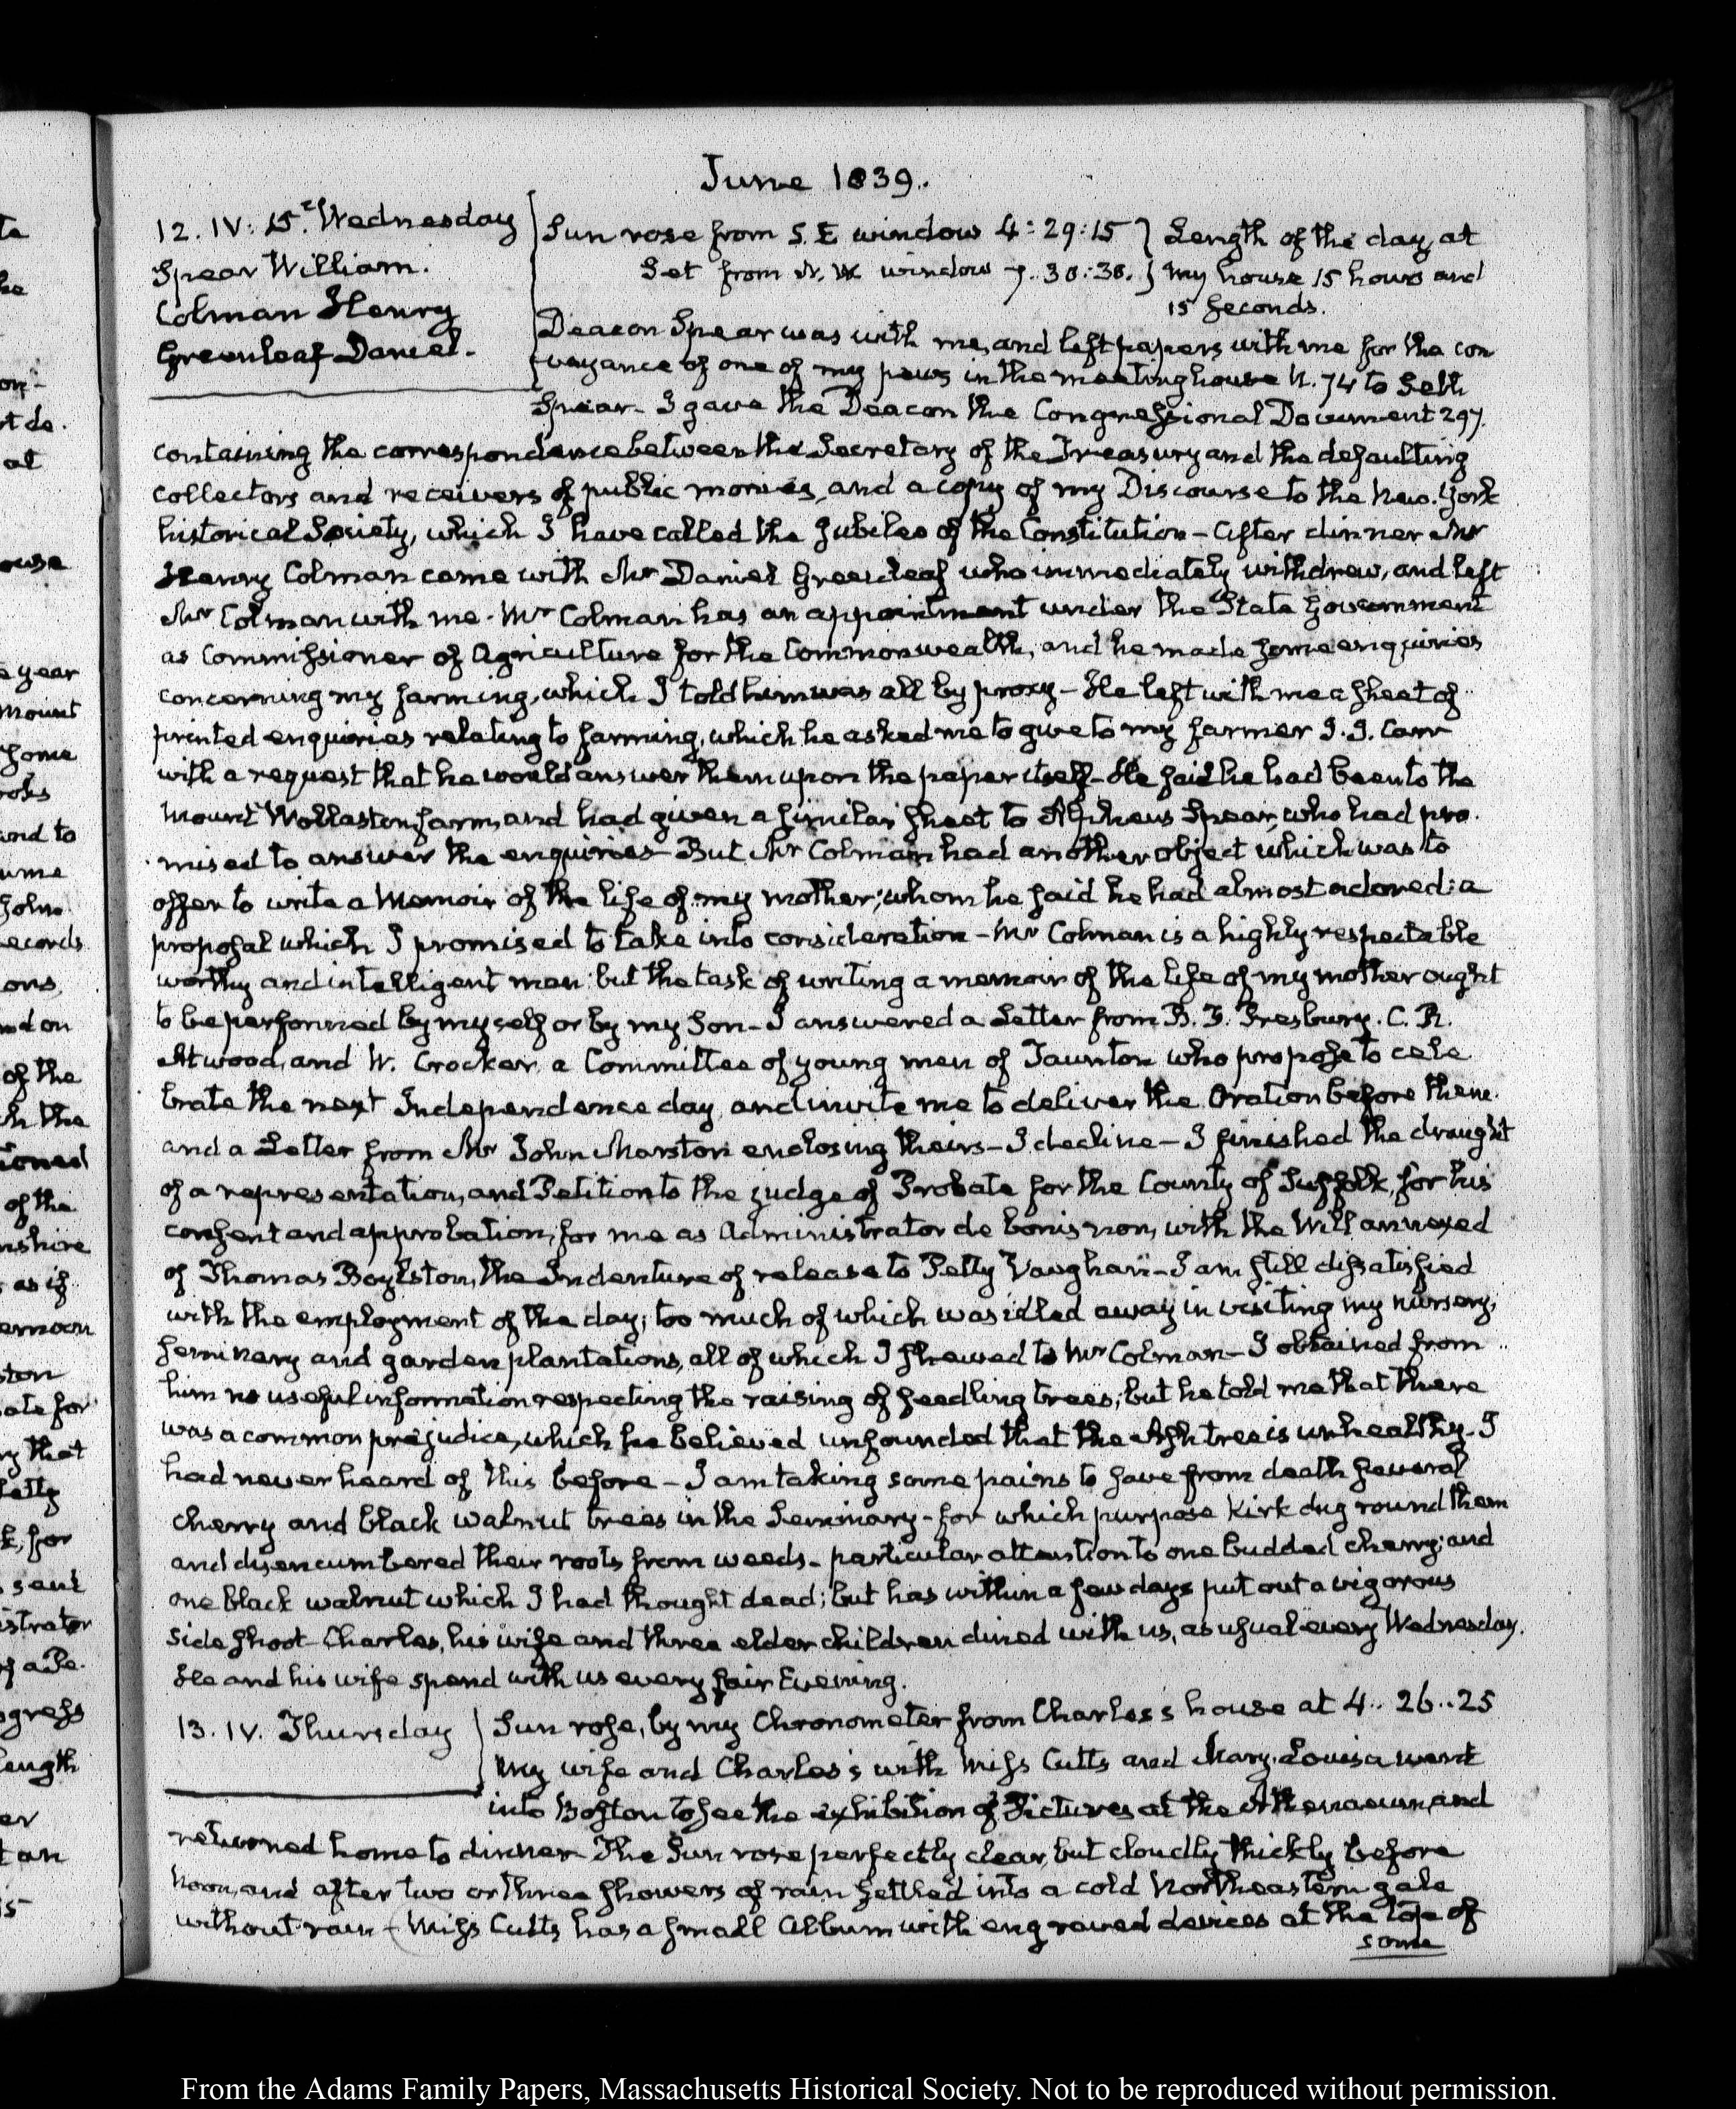 June 1839.
12. IV: 15. Wednesday
Spear William.
Colman Henry
Greenleaf Daniel.
Sun rose from S. E window 4:29:15 } Length of the day, at
Set from N. W window 7.30:30. } my house 15 hours and
15 Seconds.
Deacon Spear was with me, and left papers with me for the con
veyance of one of my pews in the meeting house N. 74 to Seth
Spear - I gave the Deacon the Congressional Document 297.
containing the correspondence between the Secretary of the Treasury and the defaulting
collectors and receivers of public monies, and a copy of my Discourse to the New-York
historical Society, which I have called the Jubilee of the Constitution - After dinner Mr
Henry Colman came with Mr Daniel Greenleaf who immediately withdrew, and left
Mr Colman with me. Mr Colman has an appointment under the State Government
as Commissioner of Agriculture for the Commonwealth, and he made some enquiries
concerning my farming, which I told him was all by proxy - He left with me a sheet of
printed enquiries relating to farming, which he asked me to give to my farmer J. J. Carr
with a request that he would answer them upon the paper itself - He said he had been to the
Mount Wollaston farm, and had given a similar sheet to Alpheus Spear, who had pro.
mised to answer the enquiries - But Mr Colman had another object which was to
offer to write a Memoir of the life of my mother; whom he said he had almost adored: a
proposal which I promised to take into consideration - Mr Colman is a highly respectable
worthy and intelligent man: but the task of writing a memoir of the life of my mother ought
to be performed by myself or by my Son - I answered a Letter from B. F. Presbury. C. R.
Atwood, and W. Crocker, a Committee of young men of Taunton who propose to cele
brate the next Independence day, and invite me to deliver the Oration before them.
and a Letter from Mr John Marston enclosing theirs - I decline - I finished the draught
of a representation, and Petition to the judge of Probate for the County of Suffolk, for his
consent and approbation, for me as Administrator de bonis non, with the Will annexed
of Thomas Boylston, the Indenture of release to Petty Vaughan - I am still dissatisfied
with the employment of the day; too much of which was idled away in visiting my nursery,
seminary and garden plantations, all of which I shewed to Mr Colman - I obtained from
him no useful information respecting the raising of seedling trees; but he told me that there
was a common prejudice, which he believed unfounded that the Ash tree is unhealthy - I
had never heard of this before - I am taking some pains to save from death several
cherry and black walnut trees in the Seminary - for which purpose Kirk dug round them
and disencumbered their roots from weeds - particular attention to one budded cherry; and
one black walnut which I had thought dead; but has within a few days put out a vigorous
side shoot - Charles, his wife and three elder children dined with us, as usual every Wednesday.
He and his wife spend with us every fair Evening.
13. IV. Thursday
Sun rose, by my Chronometer from Charles's house at 4..26..25
My wife and Charles's with Miss Cutts and Mary-Louisa went
into Boston to see the exhibition of Pictures at the Athenaeum, and
returned home to dinner - The Sun rose perfectly clear, but cloudly thickly before
Noon, and after two or three showers of rain settled into a cold Northeastern gale
without rain - Miss Cutts has a small Album with engraved devices at the top of
some
From the Adams Family Papers, Massachusetts Historical Society. Not to be reproduced without permission.